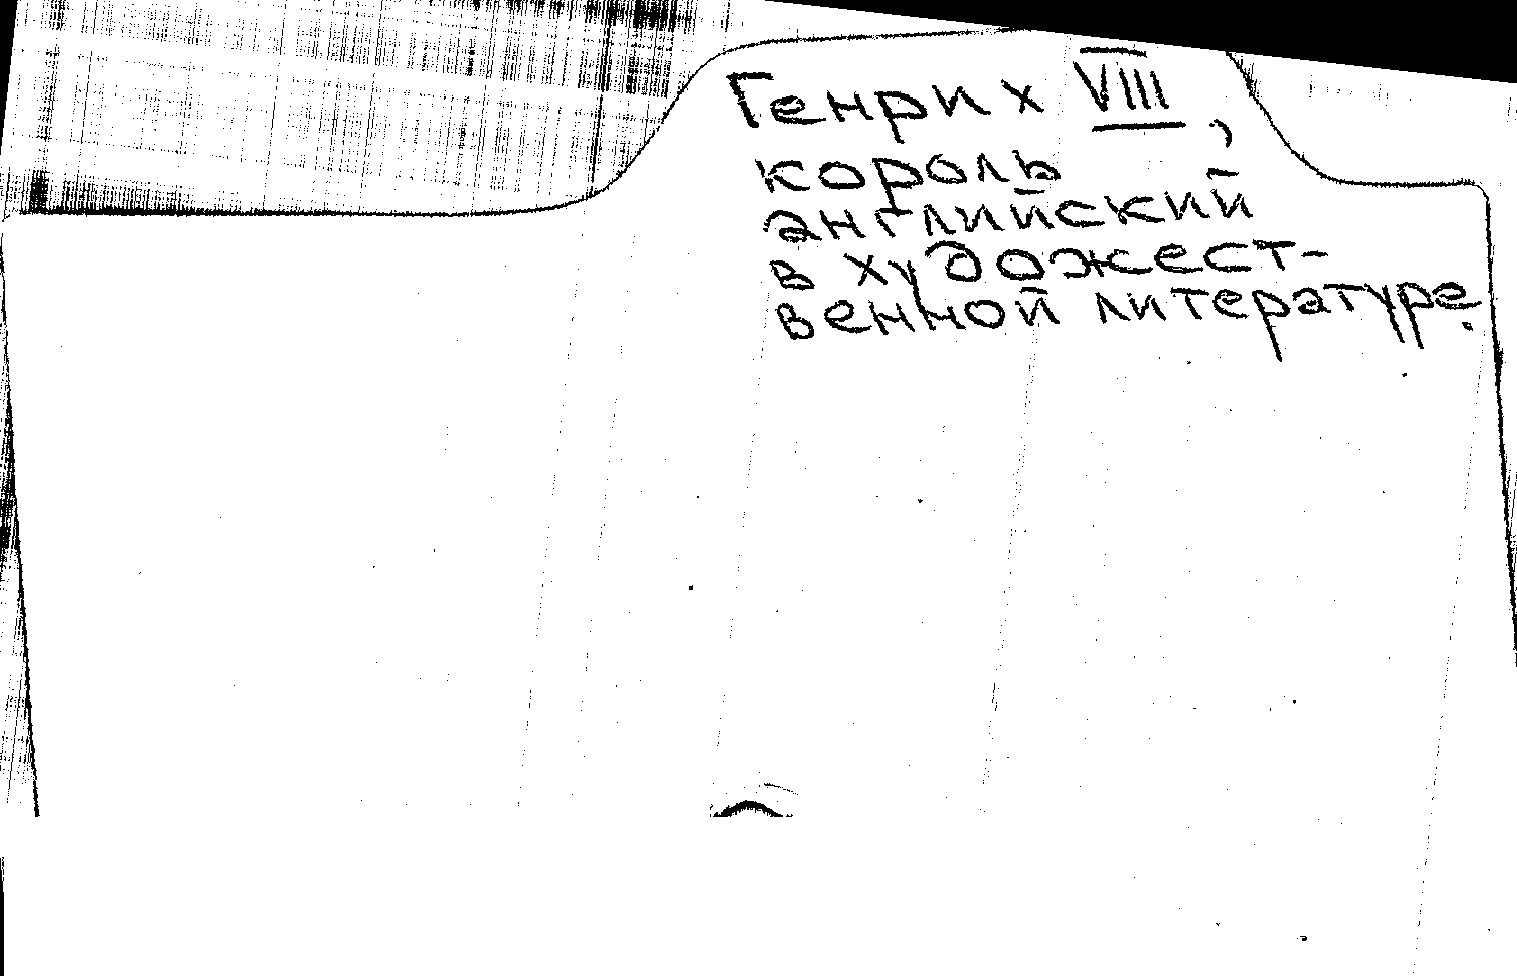 Генрих VIII,
король
английский
в художест-
венной литературе.